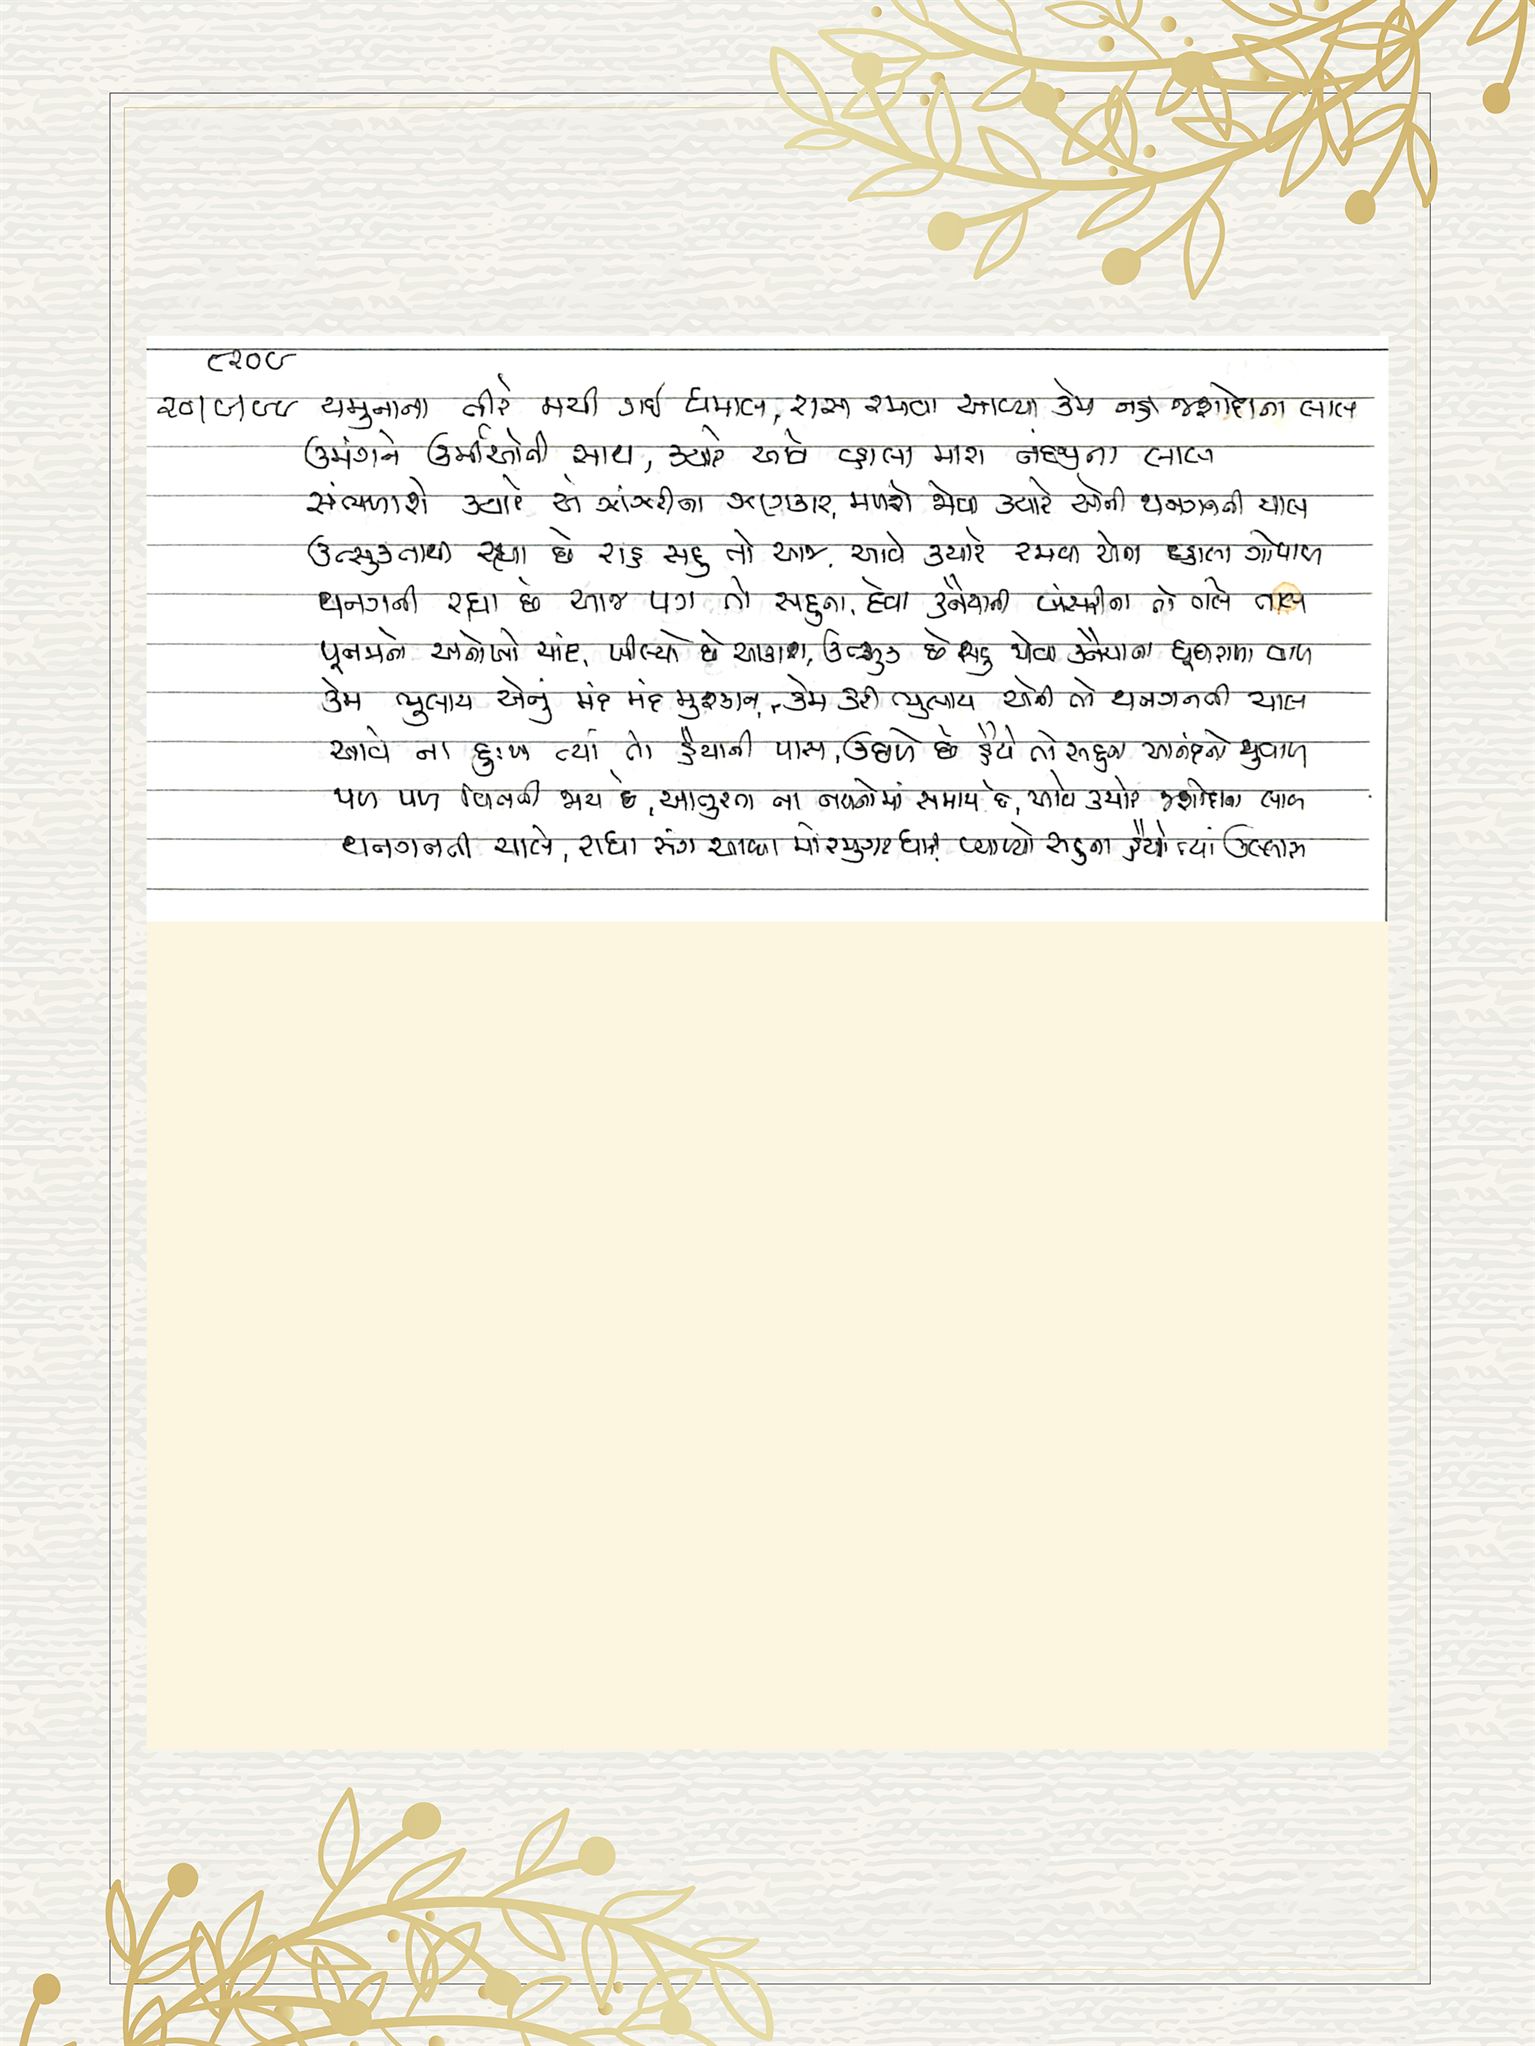 ૯૨૦૯
૨૦/૯/૯૯ યમુનાના તીરે મચી ગઈ ધમાલ, રાસ રમવા આવ્યા કેમ નહીં જશોદાના લાલ
ઉમંગને ઉર્મીઓની સાથ, ક્યારે આવે વ્હાલા મારા નંદજીના લાલ
સંભળાશે ક્યારે એ ઝાંઝરીના ઝણકાર, મળશે જોવા ક્યારે એની થનગનતી ચાલ
ઉત્સુકતાથી રહ્યા છે રાહ સહુ તો આજ, આવે ક્યારે રમવા ગોપાળ
થનગની રહ્યા છે આજ પગ તો સહુના, દેવા કનૈયાની બંસરીના તો તાલે તાલ
પૂનમનો અનોખો ચાંદ, ખીલ્યો છે આકાશ, ઉત્સુક છે સહુ જોવા કનૈયાના વાળ
કેમ ભુલાય એનું મંદ મંદ મુશકાન, કેમ કરી ભુલાય એની તો થનગનતી ચાલ
આવે ના દુઃખ ત્યાં તો હૈયાની પાસ, ઉછળે છે હૈયે તો સહુના આનંદનો જુવાળ
પળ પળ વિતતી જાય છે, આતુરતા ના નયનોમાં સમાય છે, આવે ક્યારે જશોદાના લાલ
થનગનતી ચાલે, રાધા સંગ આવ્યા મોરમુગટ ધારી, વ્યાપ્યો સહુના હૈયે ત્યાં ઉલ્લાસ